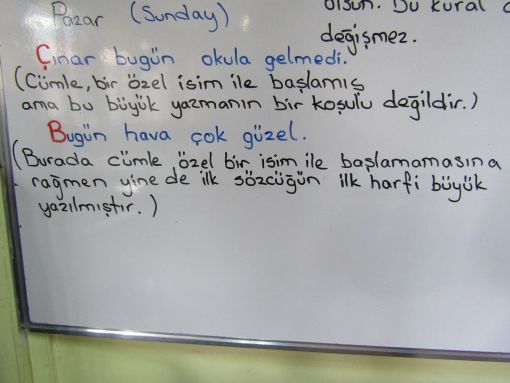 Pazar (Sunday)
olsun. Bu kural
değişmez.
Çınar bugün okula gelmedi.
(Cümle, bir özel isim ile başlamış
ama bu büyük yazmanın bir koşulu değildir.)
Bugün hava çok güzel.
(Burada cümle özel bir isim ile başlamamasına
rağmen yine de ilk sözcüğün ilk harfi büyük
yazılmıştır.)